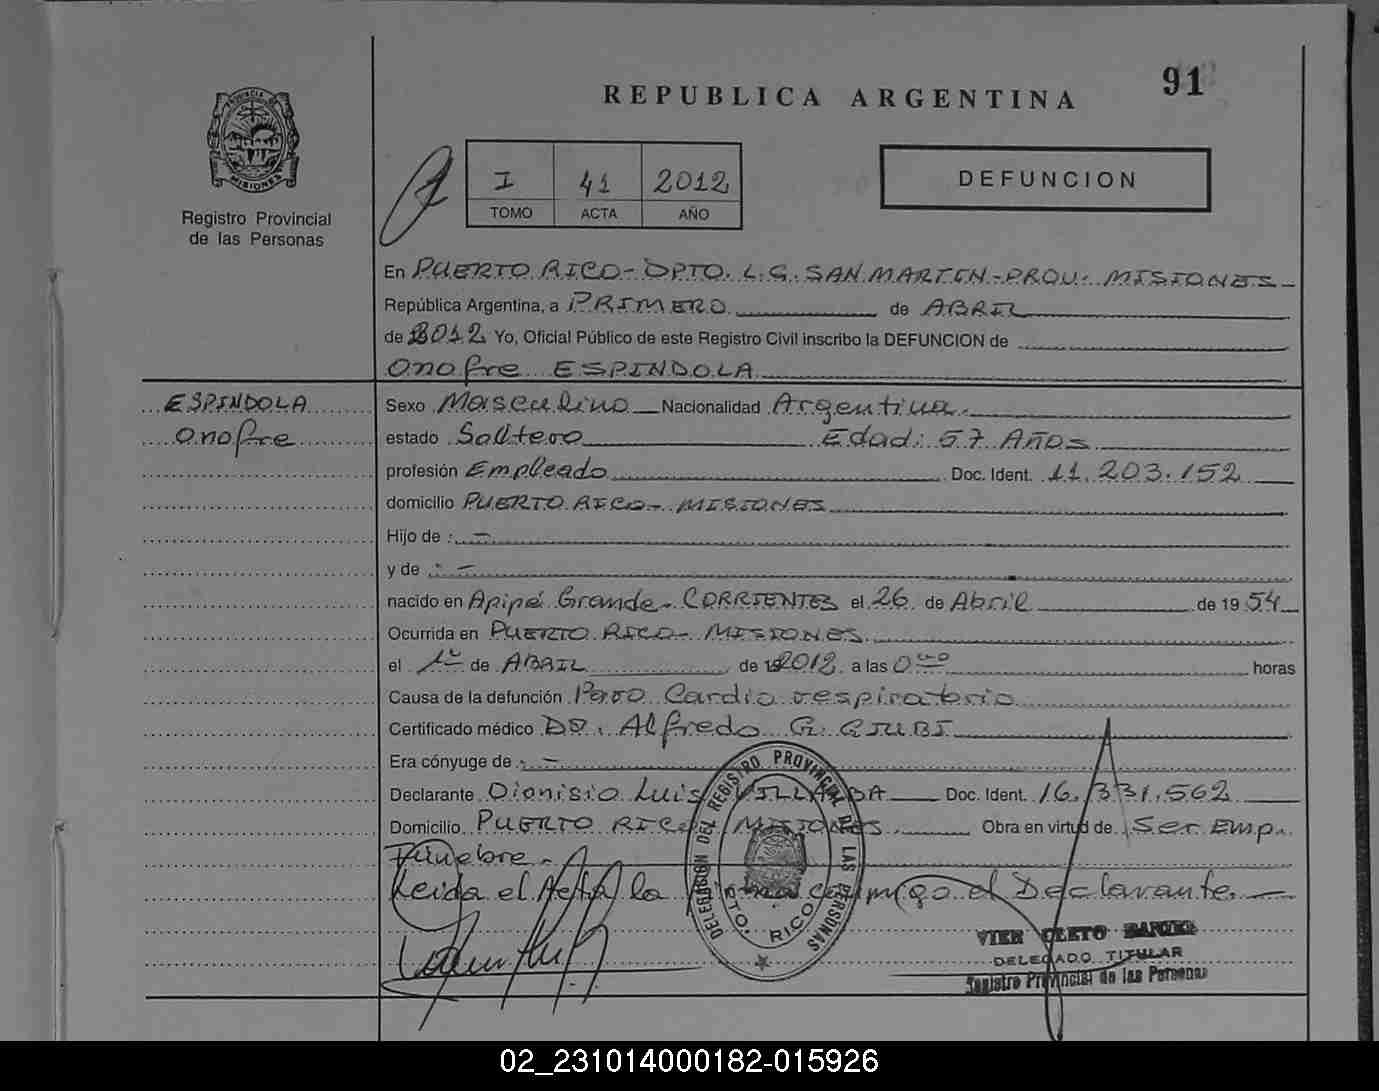 91
REPUBLICA ARGENTINA
PROVINCIA DE
MISIONES
Registro Provincial
de las Personas
I 41 2012
TOMO ACTA AÑO
DEFUNCION
En PUERTO RICO - DPTO. L.G. SAN MARTIN - PROV. MISIONES -
República Argentina, a PRIMERO de ABRIL
de 2012 Yo, Oficial Público de este Registro Civil inscribo la DEFUNCION de
Onofre ESPINDOLA
ESPINDOLA
Onofre
Sexo Masculino Nacionalidad Argentina.
estado Soltero Edad: 57 Años
profesión Empleado Doc. Ident. 11.203.152
domicilio PUERTO RICO - MISIONES
Hijo de : -
y de : -
nacido en Apipé Grande - CORRIENTES el 26 de Abril de 1954
Ocurrida en PUERTO RICO - MISIONES
el 1º de ABRIL de 2012 a las 0 horas
Causa de la defunción Paro Cardio respiratorio
Certificado médico DR. Alfredo G. GIUBI
Era cónyuge de : -
Declarante Dionisio Luis VILLALBA Doc. Ident. 16.331.562
Domicilio PUERTO RICO MISIONES Obra en virtud de Ser Emp.
Fúnebre.
Leida el Acta la conmigo el Declarante.
DELEGACION DEL REGISTRO PROVINCIAL DE LAS PERSONAS
PTO. RICO
VIER CLETO DANIEL
DELEGADO TITULAR
Registro Provincial de las Personas
02_231014000182-015926